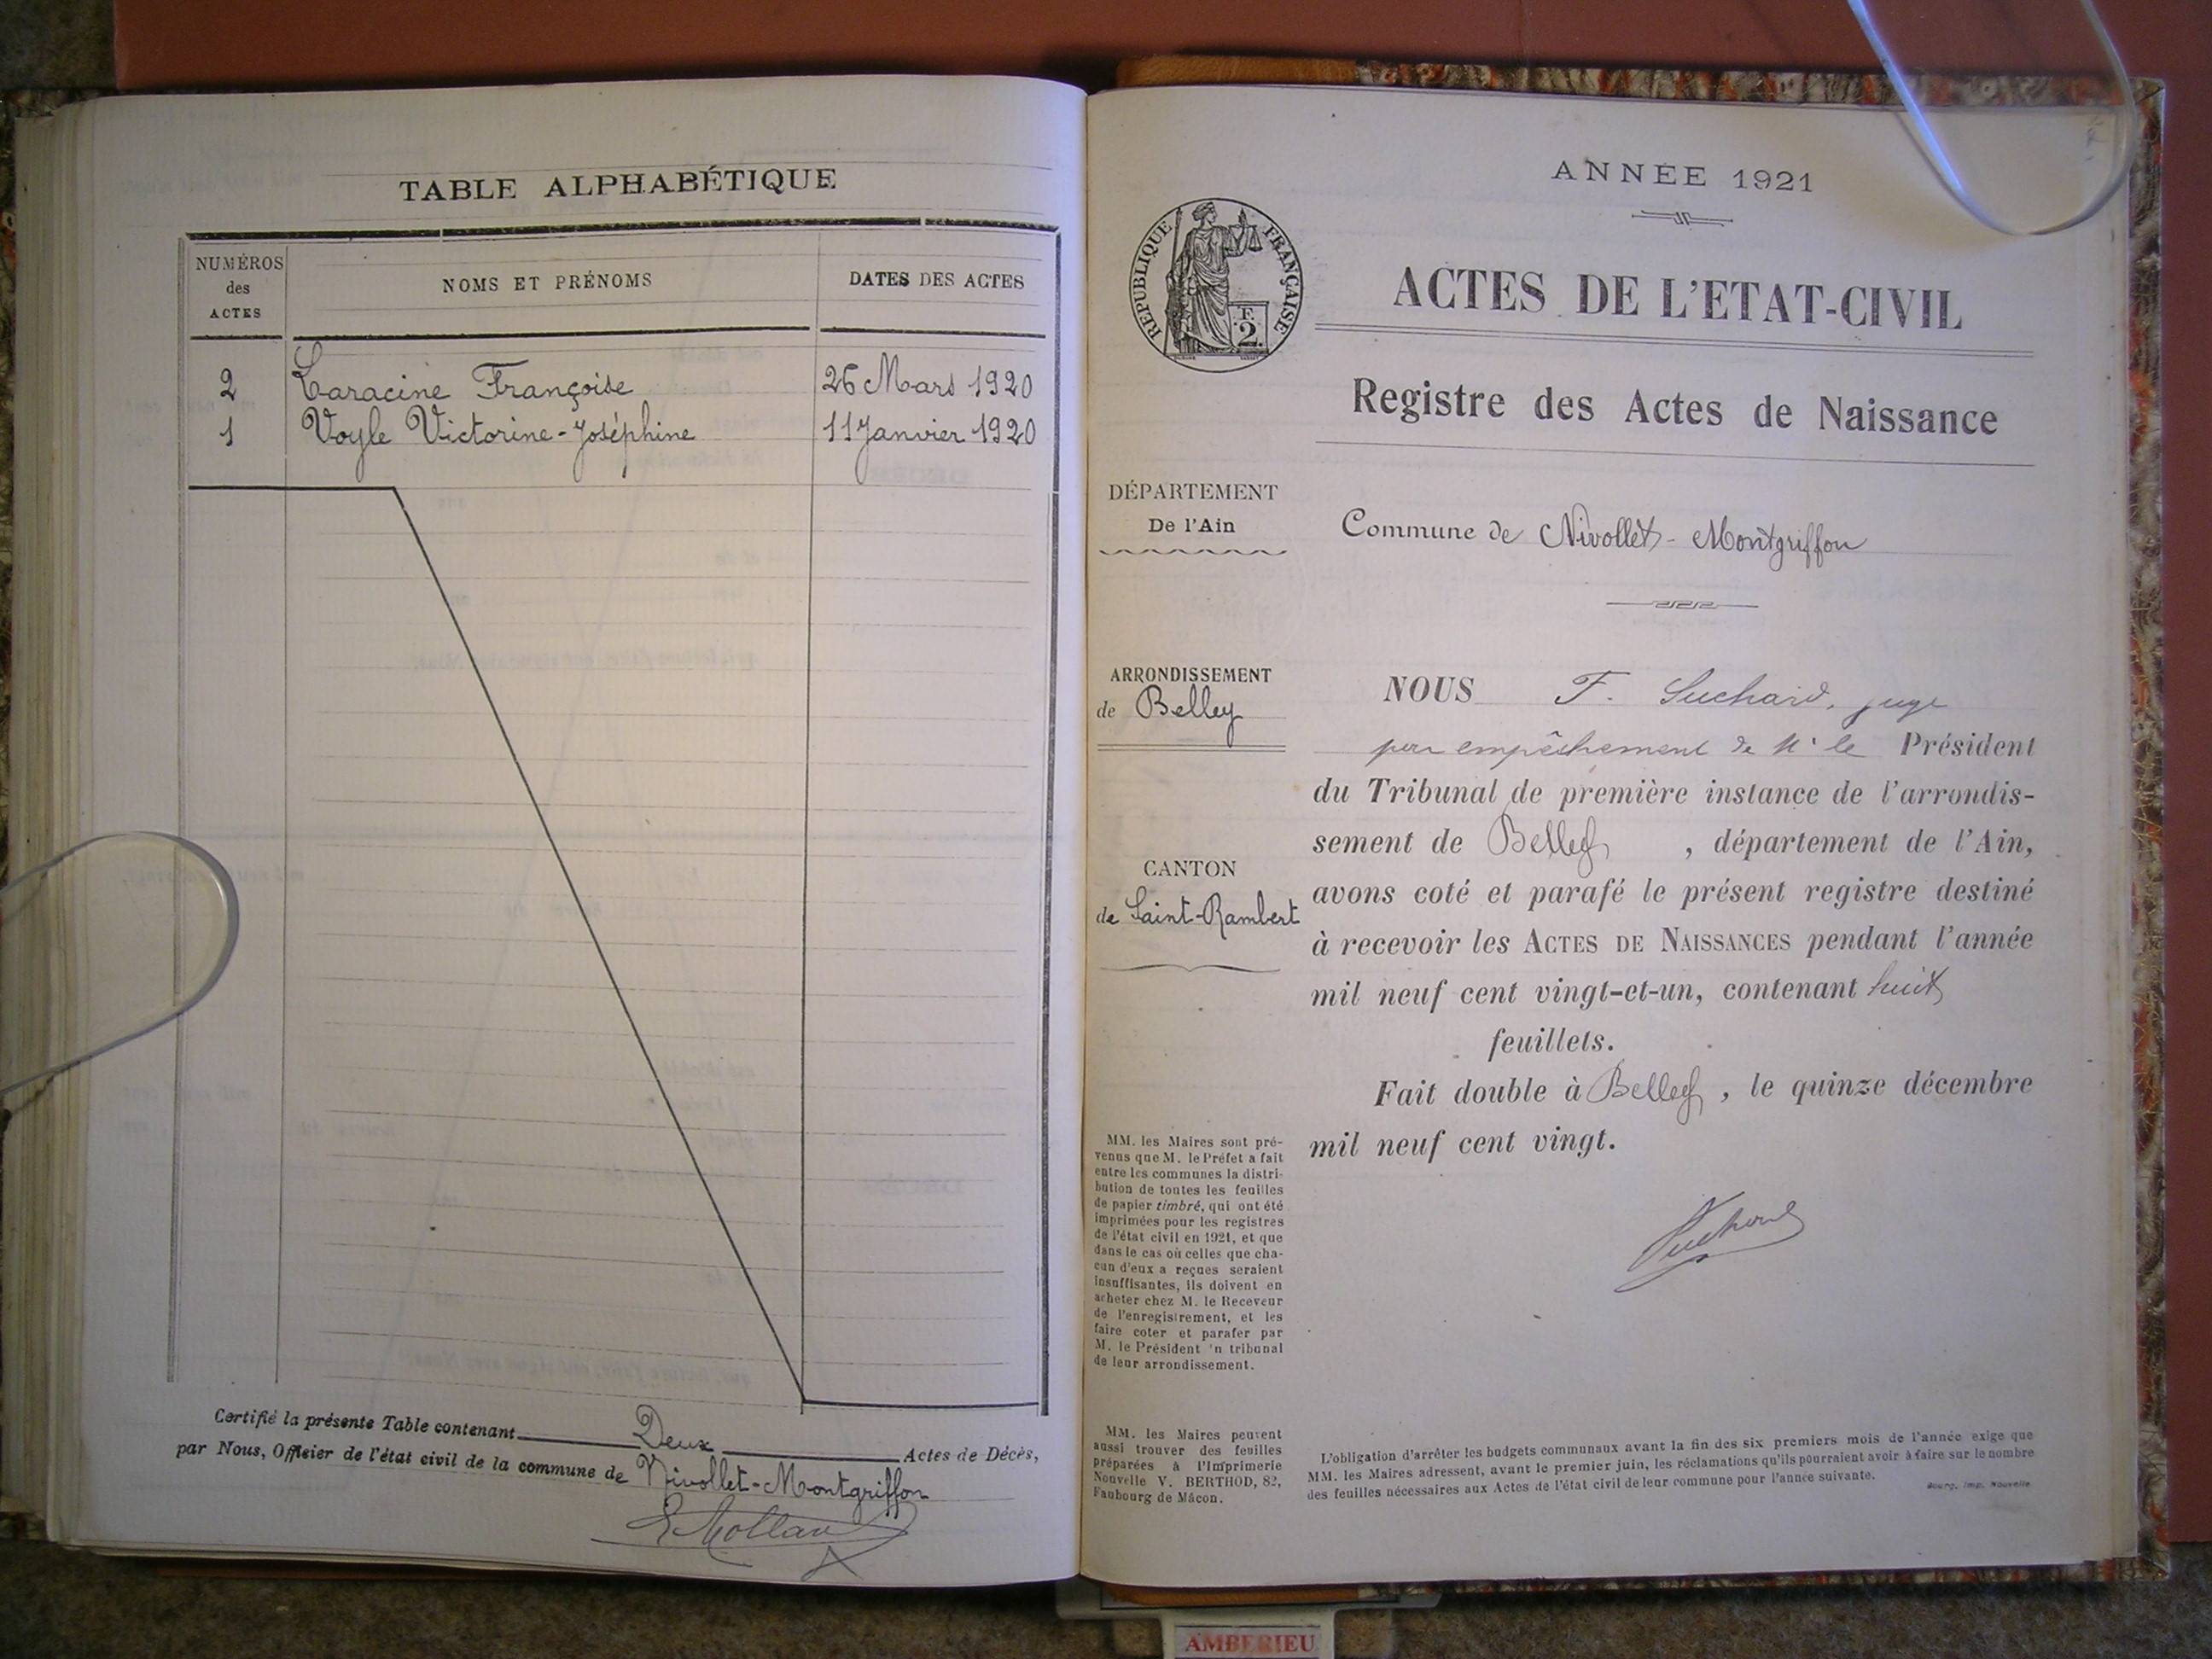 TABLE ALPHABÉTIQUE
NUMÉROS
des
ACTES
NOMS ET PRÉNOMS
DATES DES ACTES
2 Caracine Françoise 26 Mars 1920
1 Voyle Victorine-Joséphine 11 Janvier 1920
Certifié la présente Table contenant Deux Actes de Décès,
par Nous, Officier de l'état civil de la commune de Nivollet-Montgriffon
ANNÉE 1921
RÉPUBLIQUE FRANÇAISE
F.
2.
ACTES DE L'ETAT-CIVIL
Registre des Actes de Naissance
DÉPARTEMENT
De l'Ain
Commune de Nivollet-Montgriffon
ARRONDISSEMENT
de Belley
CANTON
de Saint-Rambert
NOUS F. Suchard, juge
par empêchement de Mr le Président
du Tribunal de première instance de l'arrondis-
sement de Belley, département de l'Ain,
avons coté et parafé le présent registre destiné
à recevoir les ACTES DE NAISSANCES pendant l'année
mil neuf cent vingt-et-un, contenant huit
feuillets.
Fait double à Belley, le quinze décembre
mil neuf cent vingt.
MM. les Maires sont pré-
venus que M. le Préfet a fait
entre les communes la distri-
bution de toutes les feuilles
de papier timbré, qui ont été
imprimées pour les registres
de l'état civil en 1921, et que
dans le cas où celles que cha-
cun d'eux a reçues seraient
insuffisantes, ils doivent en
acheter chez M. le Receveur
de l'enregistrement, et les
faire coter et parafer par
M. le Président 'n tribunal
de leur arrondissement.
MM. les Maires peuvent
aussi trouver des feuilles
préparées à l'Imprimerie
Nouvelle V. BERTHOD, 82,
Faubourg de Mâcon.
L'obligation d'arrêter les budgets communaux avant la fin des six premiers mois de l'année exige que
MM. les Maires adressent, avant le premier juin, les réclamations qu'ils pourraient avoir à faire sur le nombre
des feuilles nécessaires aux Actes de l'état civil de leur commune pour l'année suivante.
Bourg, Imp. Nouvelle
AMBERIEU